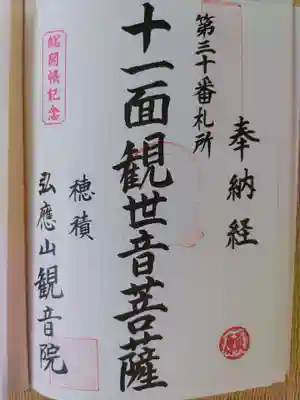 奉納経
第三十番札所
十一面観世音菩薩
穂積
弘應山観音院
総開帳記念